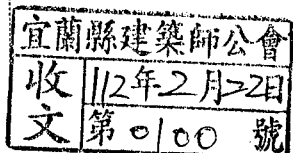 宜蘭縣建築師公會
收文
112年2月22日
第0100號